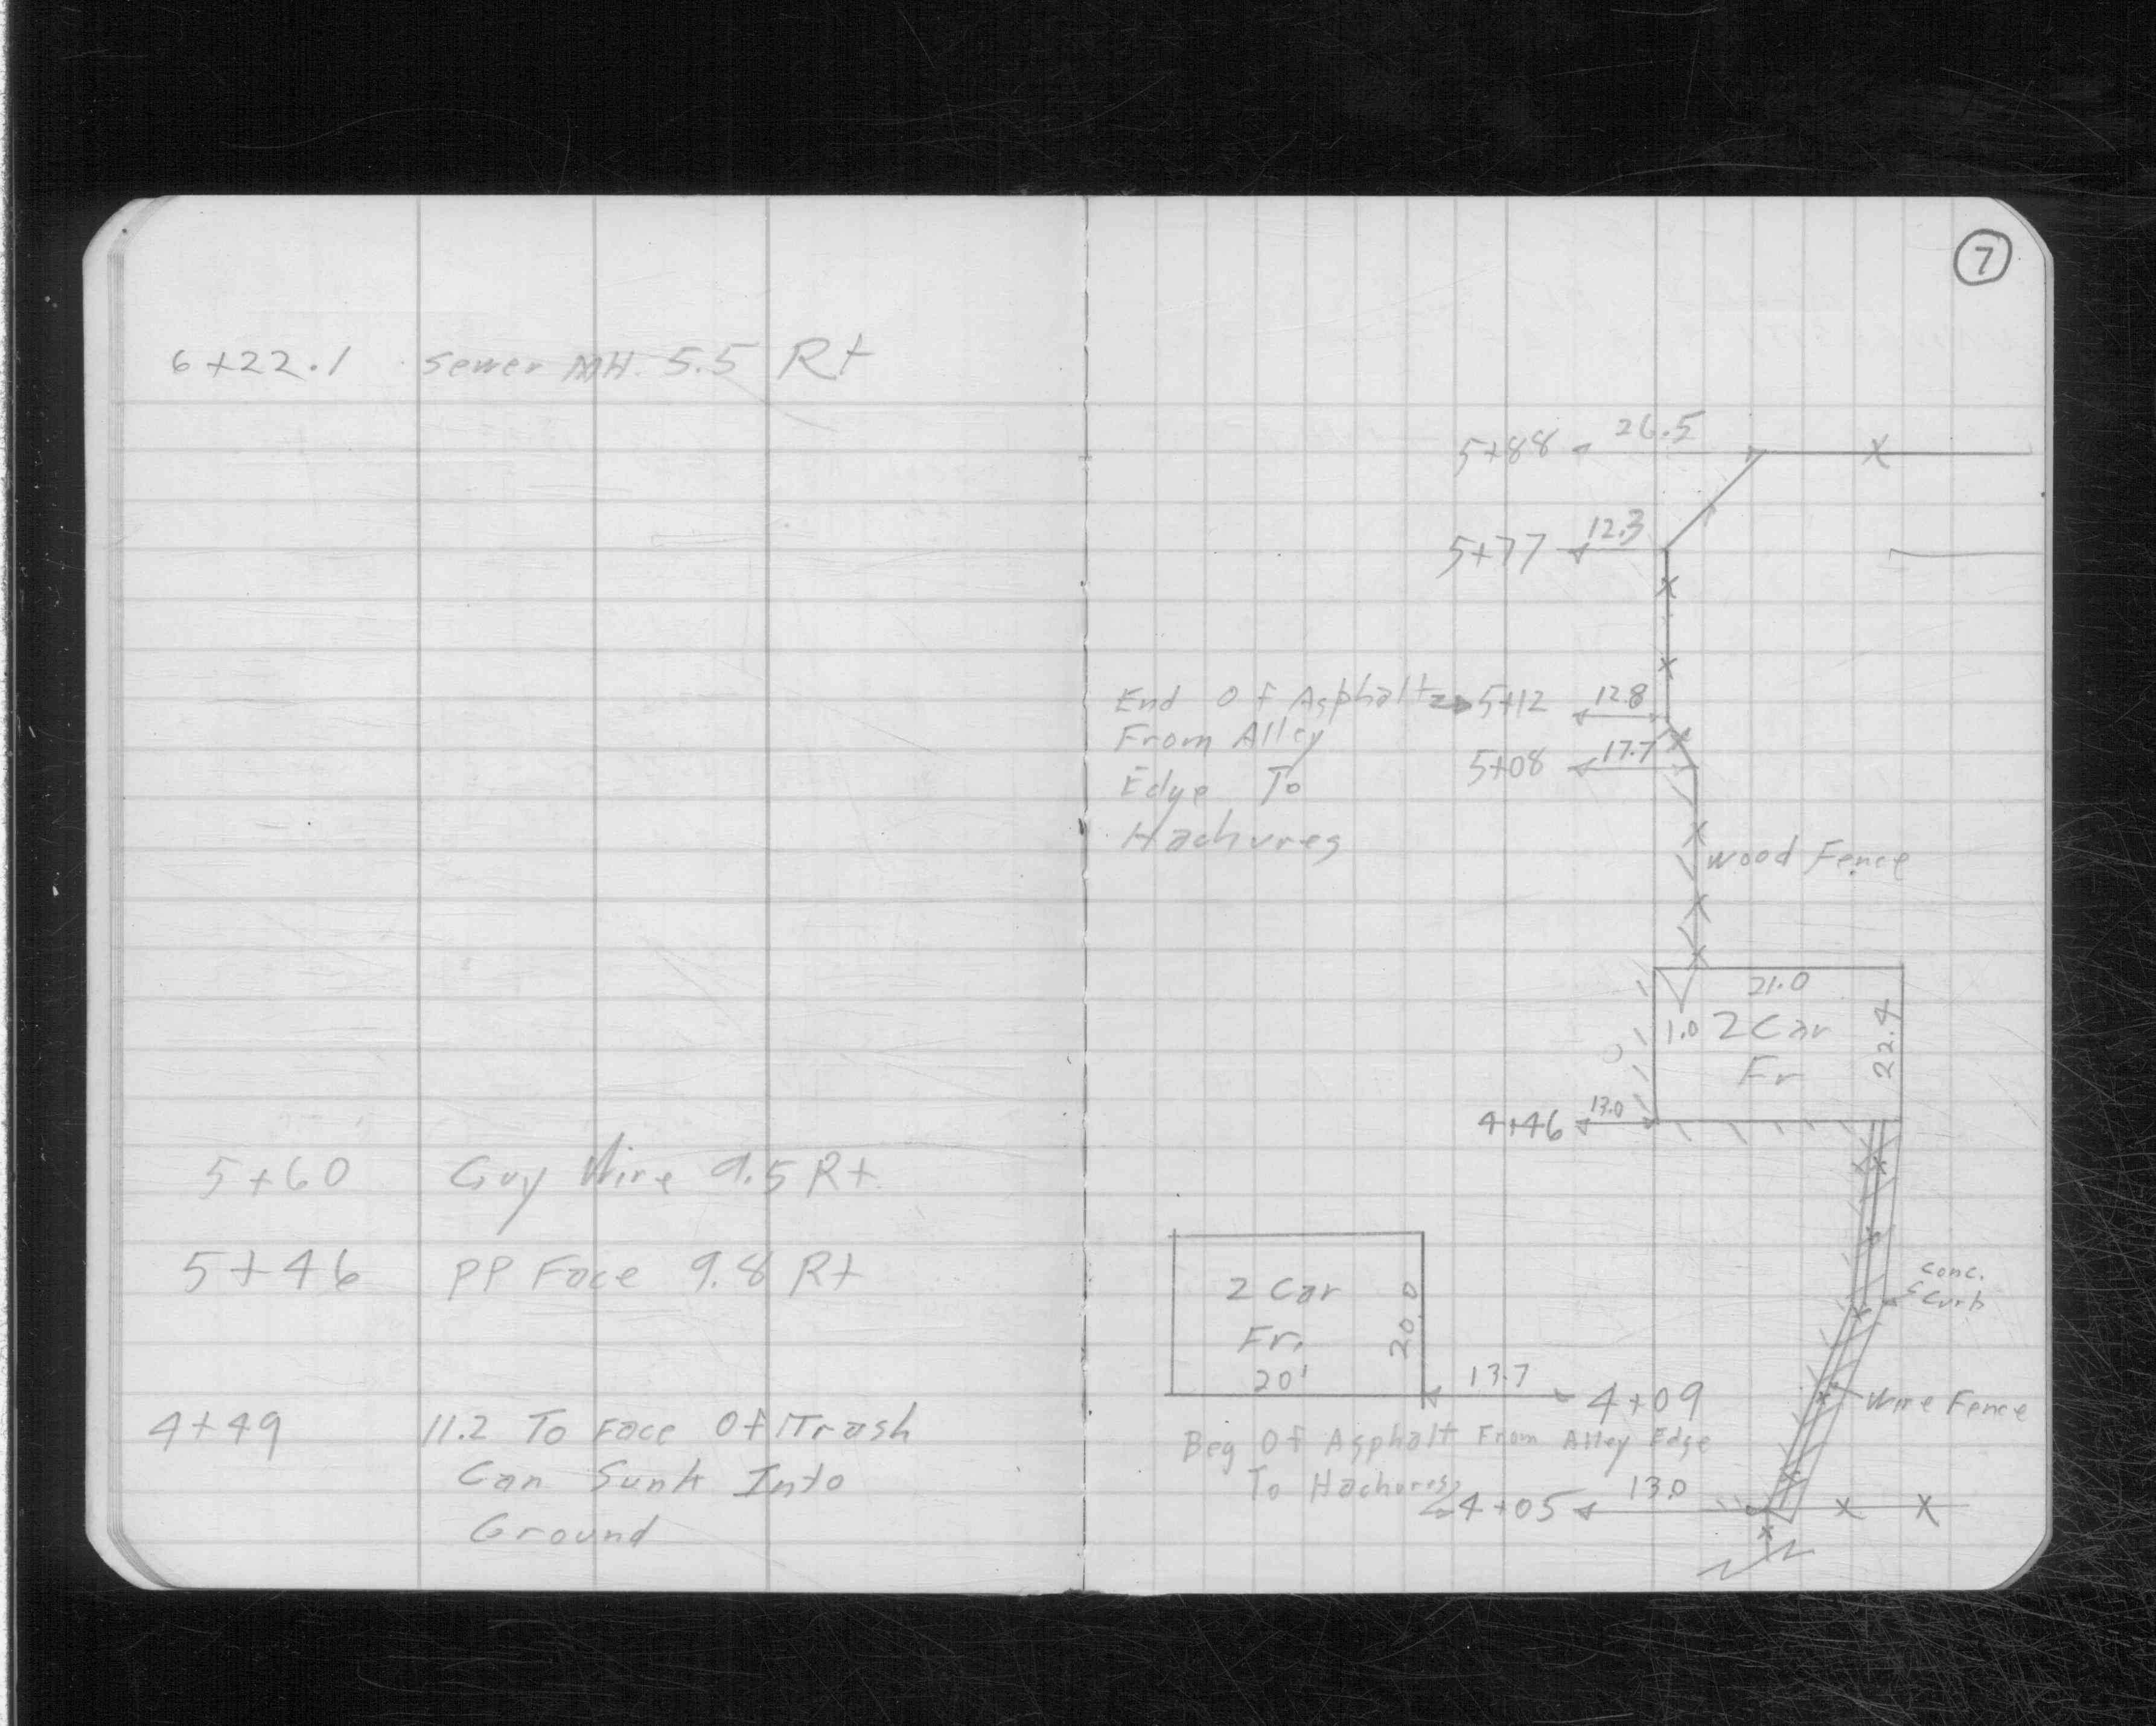 6+22.1 Sewer MH. 5.5 Rt
5+60 Guy Wire 9.5 Rt.
5+46 PP Face 9.8 Rt
4+49 11.2 To Face Of Trash
Can Sunk Into
Ground
7
5+88 26.5
5+77 12.3
End Of Asphalt 5+12 12.8
From Alley
5+08 17.7
Edge To
Hachures
Wood Fence
21.0
1.0 2 Car
Fr
22.4
4+46 13.0
Conc.
Curb
2 Car
Fr.
20'
20.0
13.7 4+09
Wire Fence
Beg Of Asphalt From Alley Edge
To Hachures 4+05 13.0